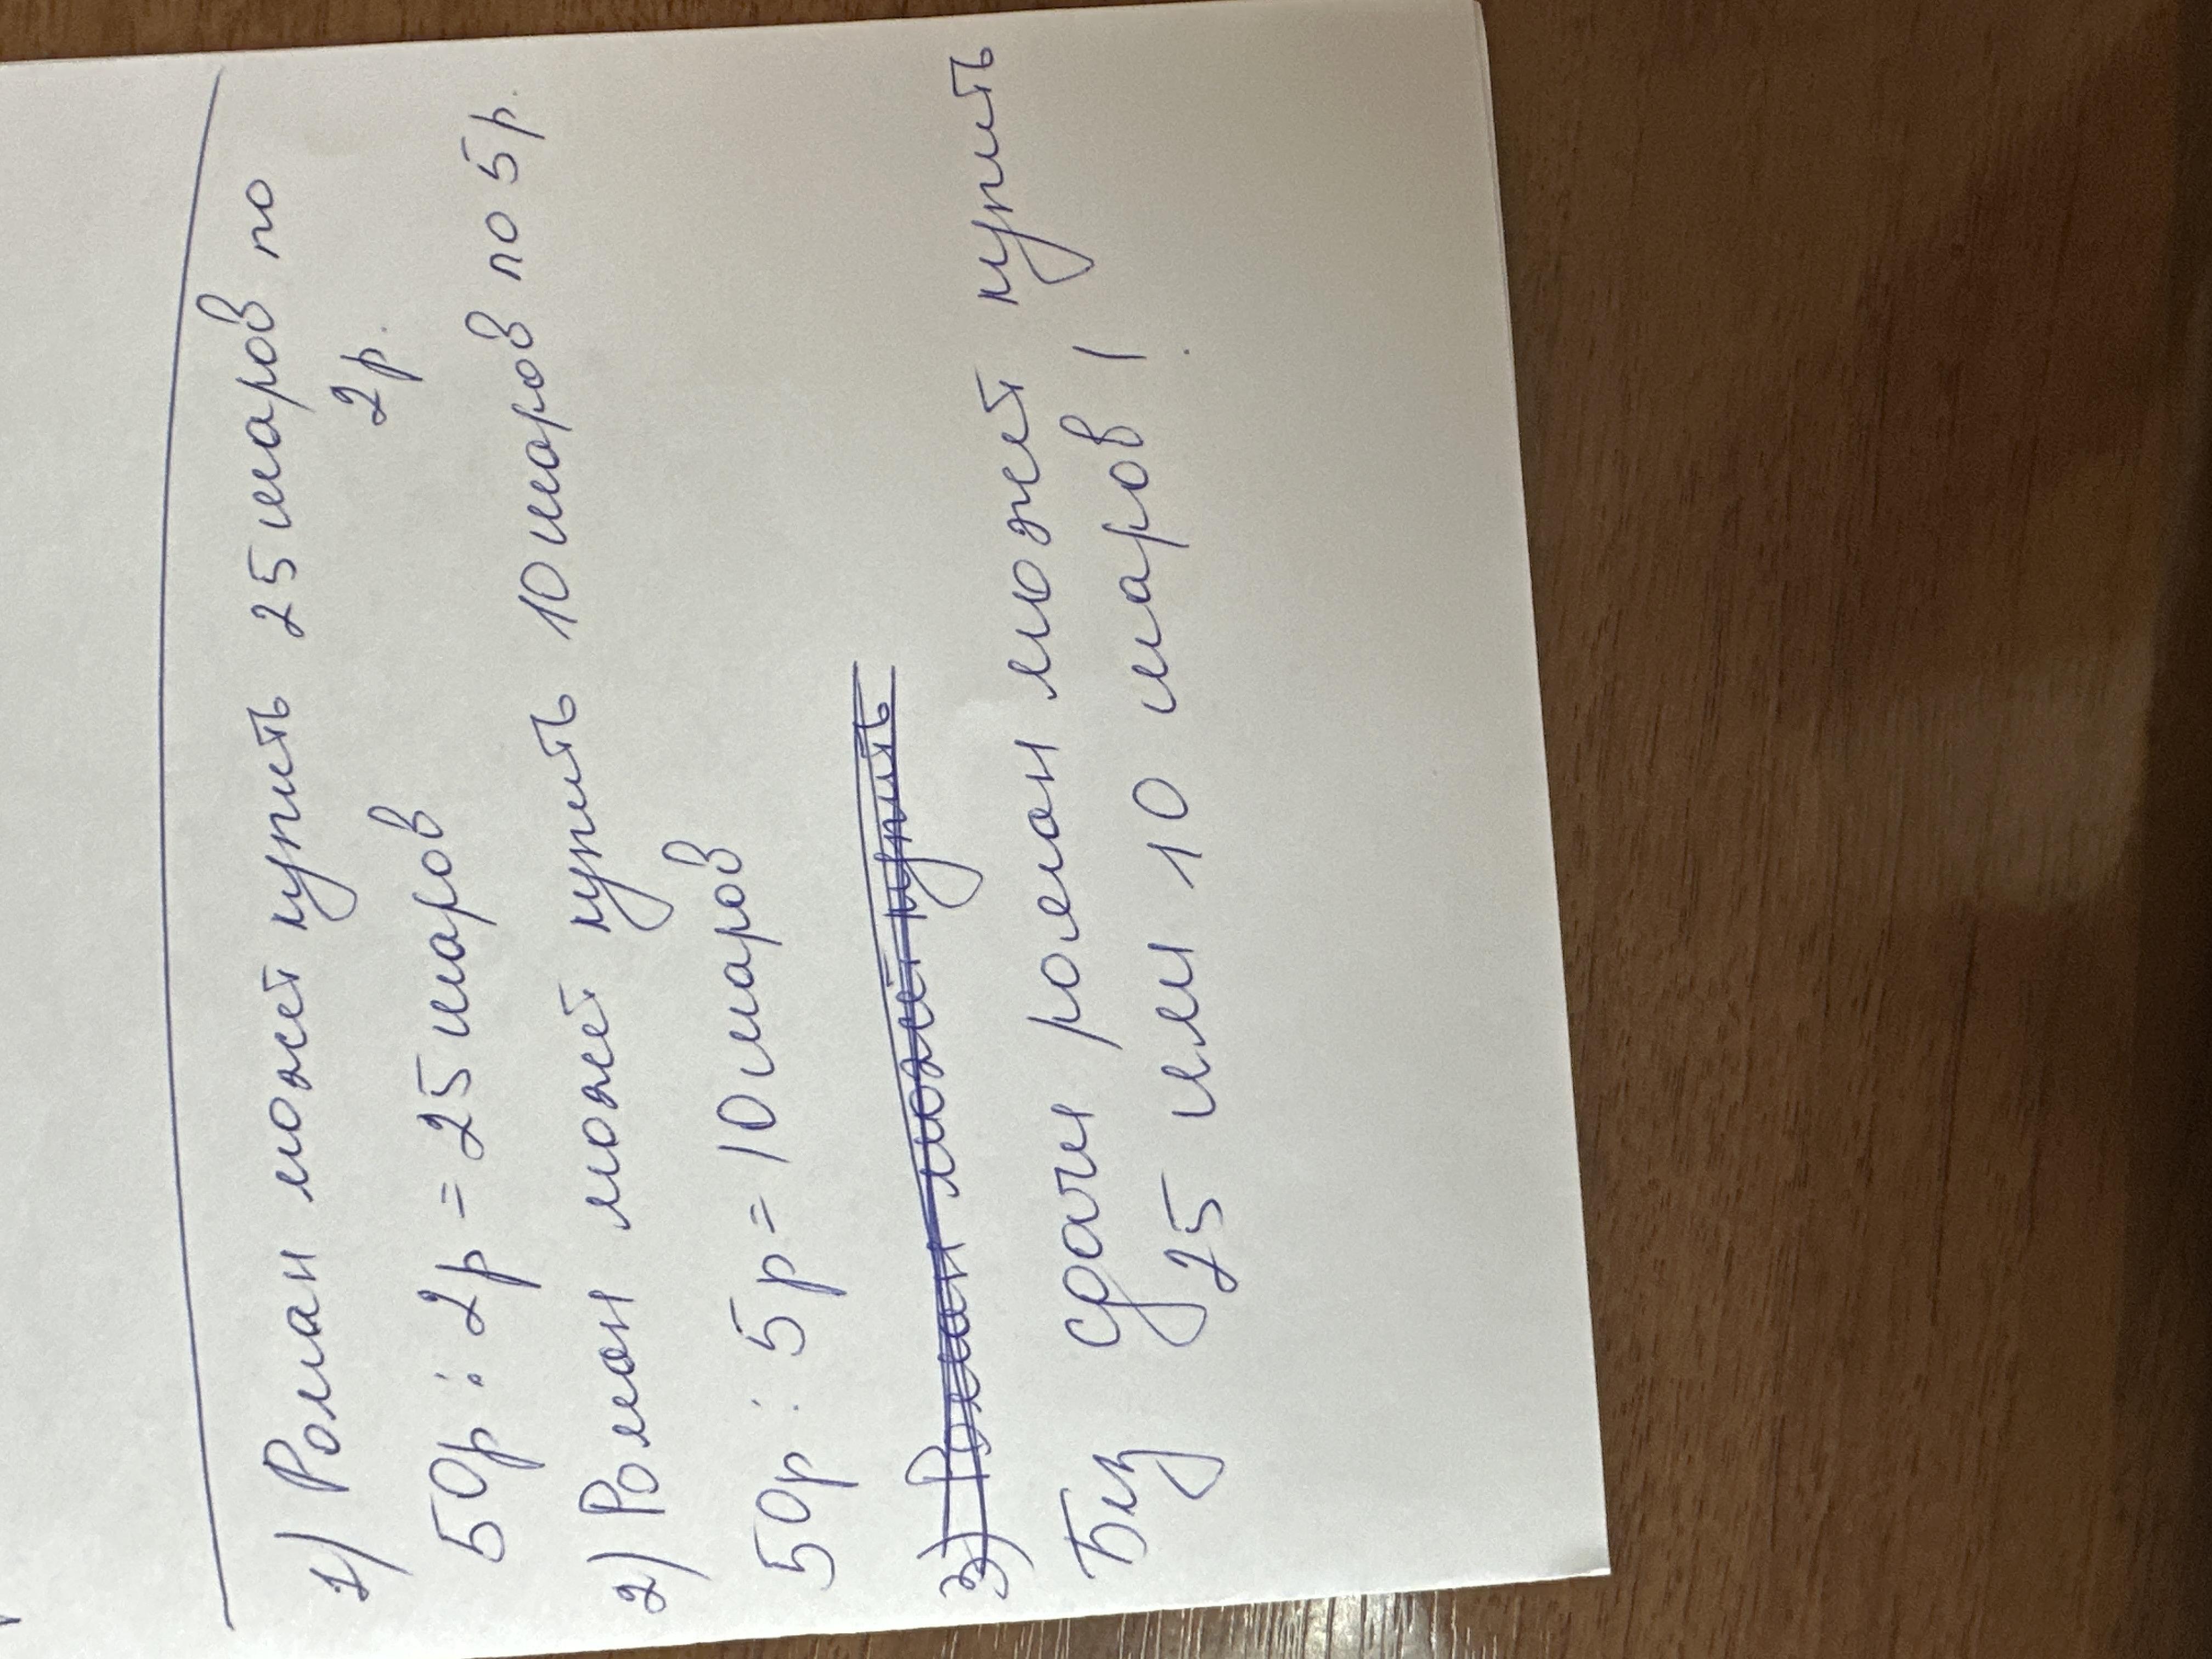 1) Роман может купить 25 шаров по
2р.
50р : 2р = 25 шаров
2) Роман может купить 10 шаров по 5р.
50р : 5р = 10 шаров
3) Роман может купить
Биз сдачи роман может купить
25 или 10 шаров!